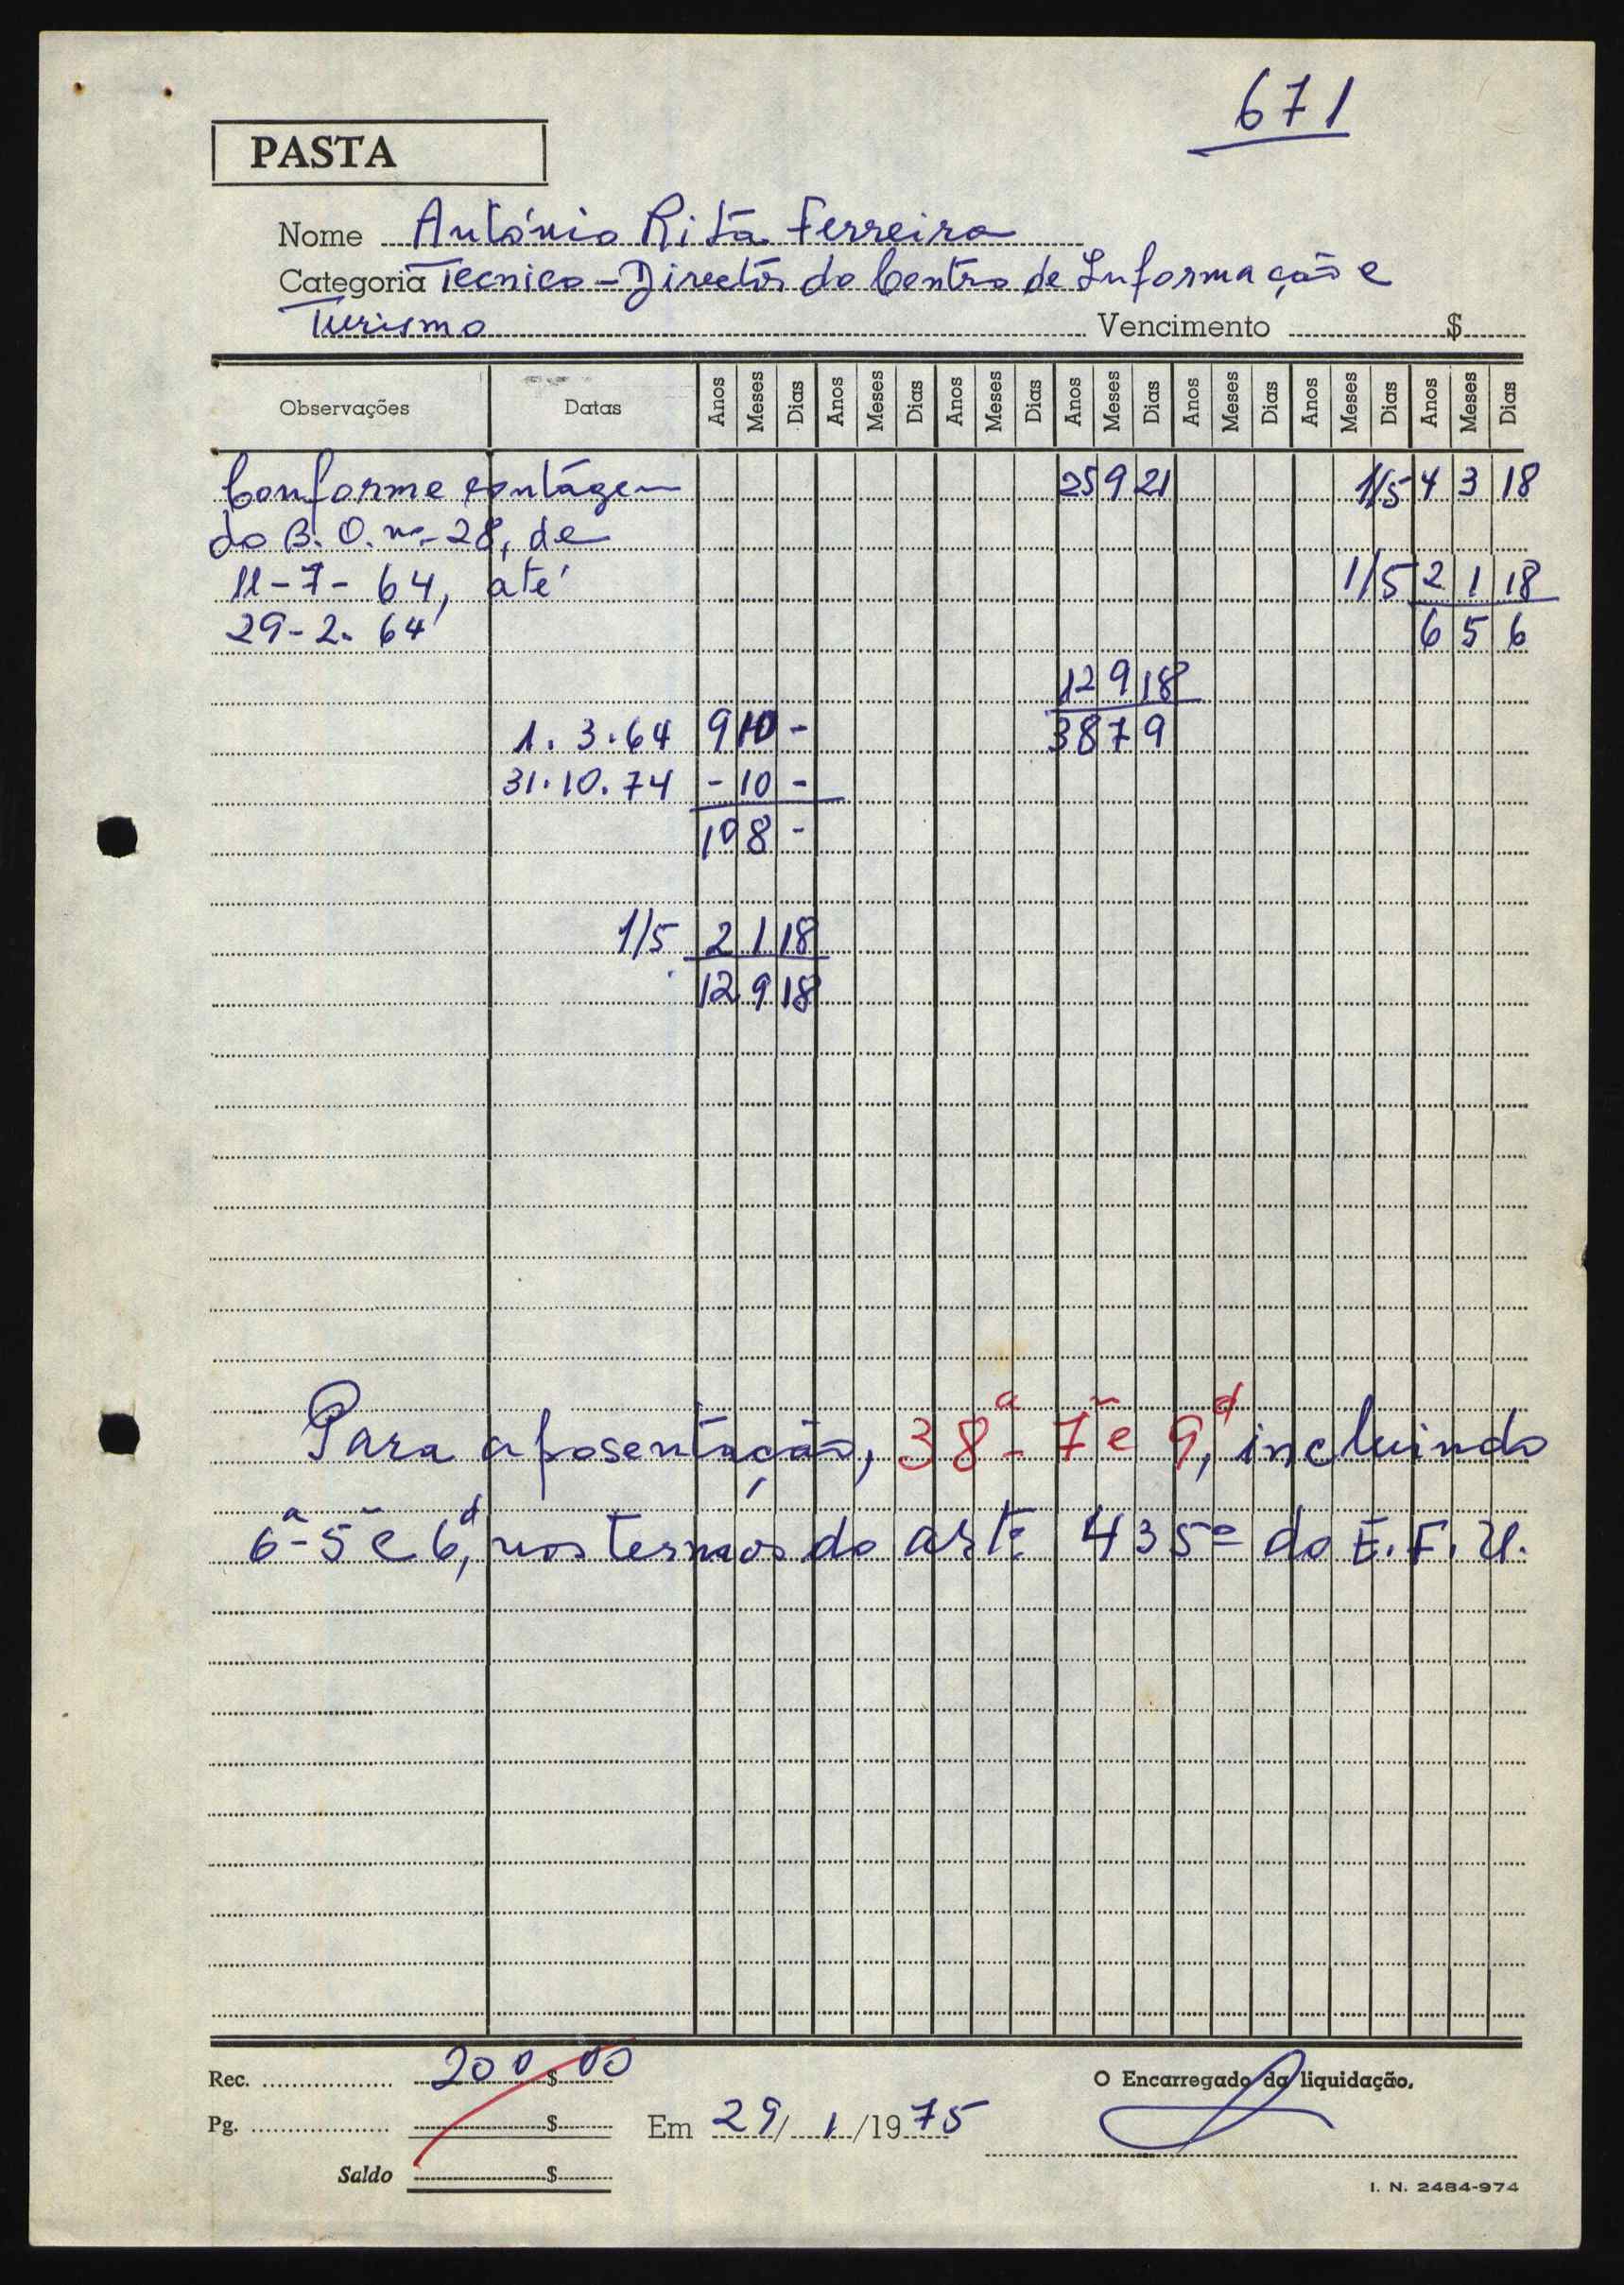 671
PASTA
Nome António Rita Ferreira
Categoria Tecnico - Directôr do Centro de Informação e
Turismo Vencimento $
Observações Datas Anos Meses Dias Anos Meses Dias Anos Meses Dias Anos Meses Dias Anos Meses Dias Anos Meses Dias Anos Meses Dias
Conforme contágem 25 9 21 1/5 4 3 18
do B. O. nº 28, de
11-7-64, até 1/5 2 1 18
29-2-64 6 5 6
12 9 18
1.3.64 9 10 - 38 7 9
31.10.74 - 10 -
10 8 -
1/5 2 1 18
12 9 18
Para aposentação, 38a- 7m e 9d, incluindo
6a- 5m e 6d, nos termos do artº 435º do E.F.U.
Rec. 200$00 O Encarregado da liquidação,
Pg. $ Em 29/1/1975
Saldo $
I. N. 2484-974